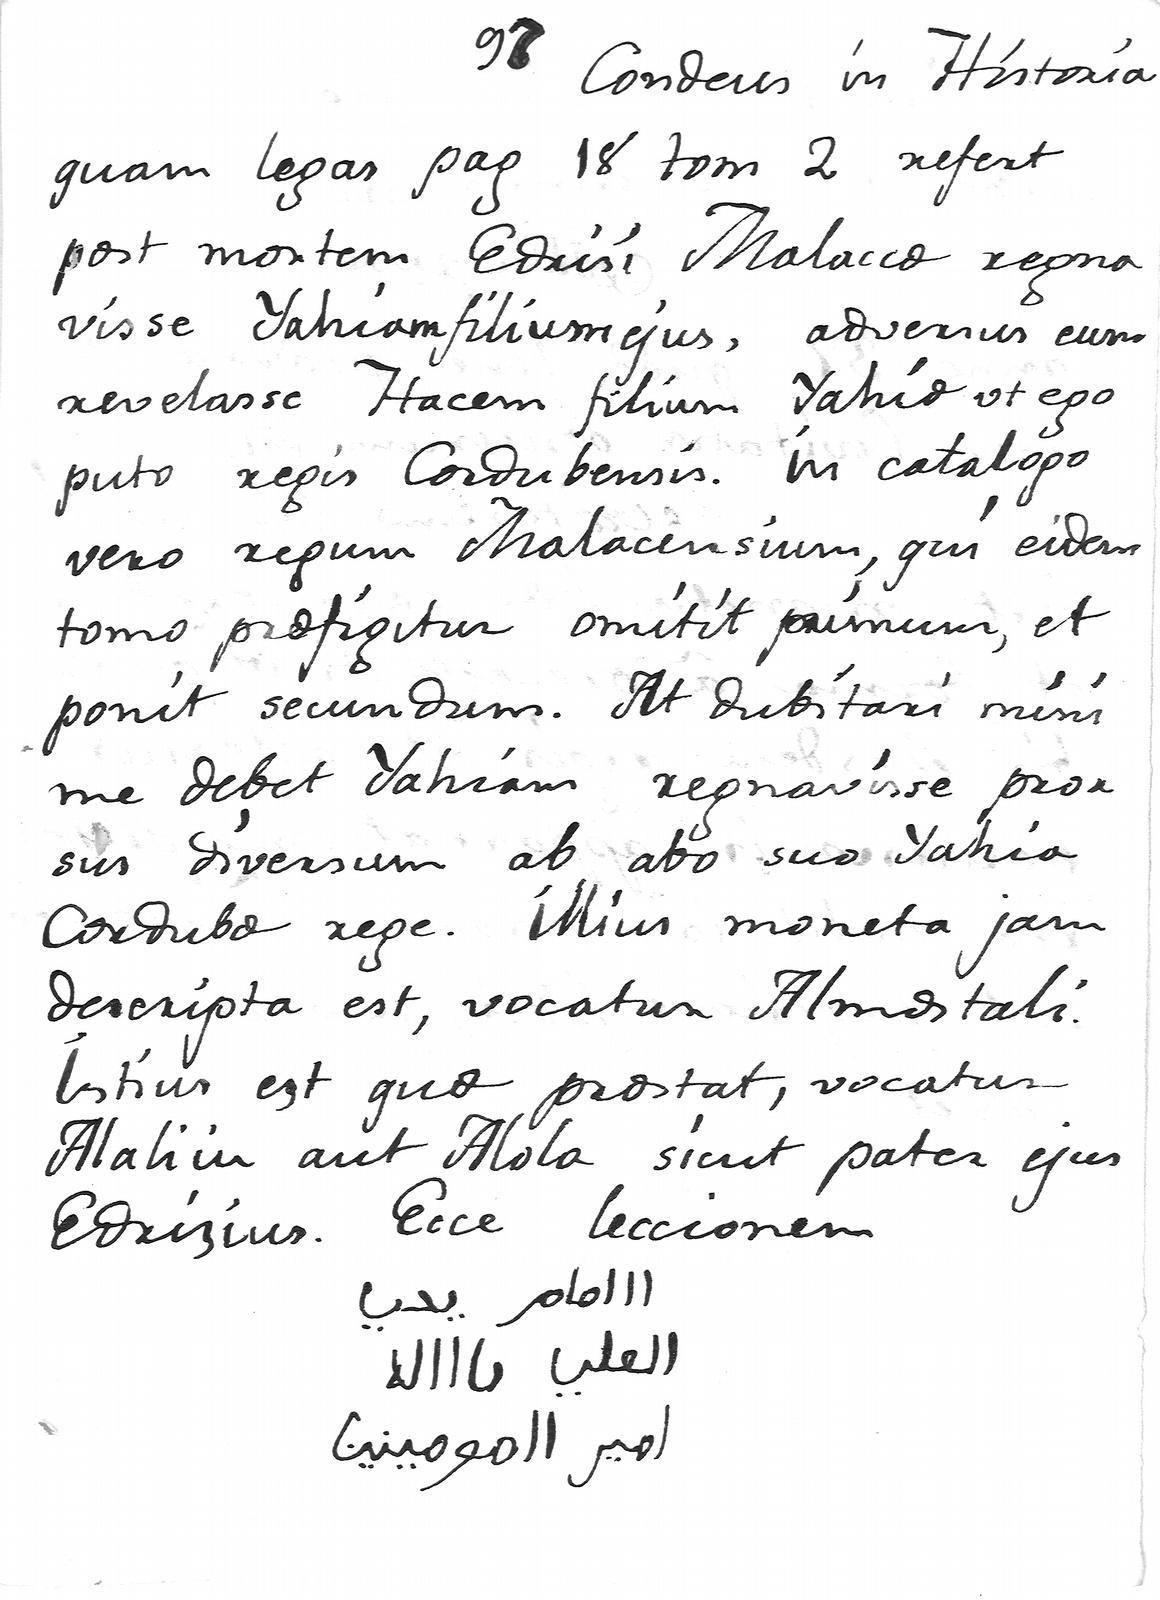 98
Condeus in Historia
quam legas pag 18 tom 2 refert
post mortem Edrisi Malaccæ regna
visse Yahiam filium ejus, adversus eum
revelasse Hacem filium Yahiæ ut ego
puto regis Cordubensis. in catalogo
vero regum Malacensium, qui eidem
tomo præfigitur omitit primum, et
ponit secundum. At dubitari mini
me debet Yahiam regnavisse pror
sus diversum ab abo suo Yahia
Cordubæ rege. illius moneta jam
descripta est, vocatur Almostali.
istius est quæ præstat, vocatur
Alaliu aut Alola sicut pater ejus
Edrizius. Ecce leccionem
الامام يحيى
العلي باالله
امير المومينين